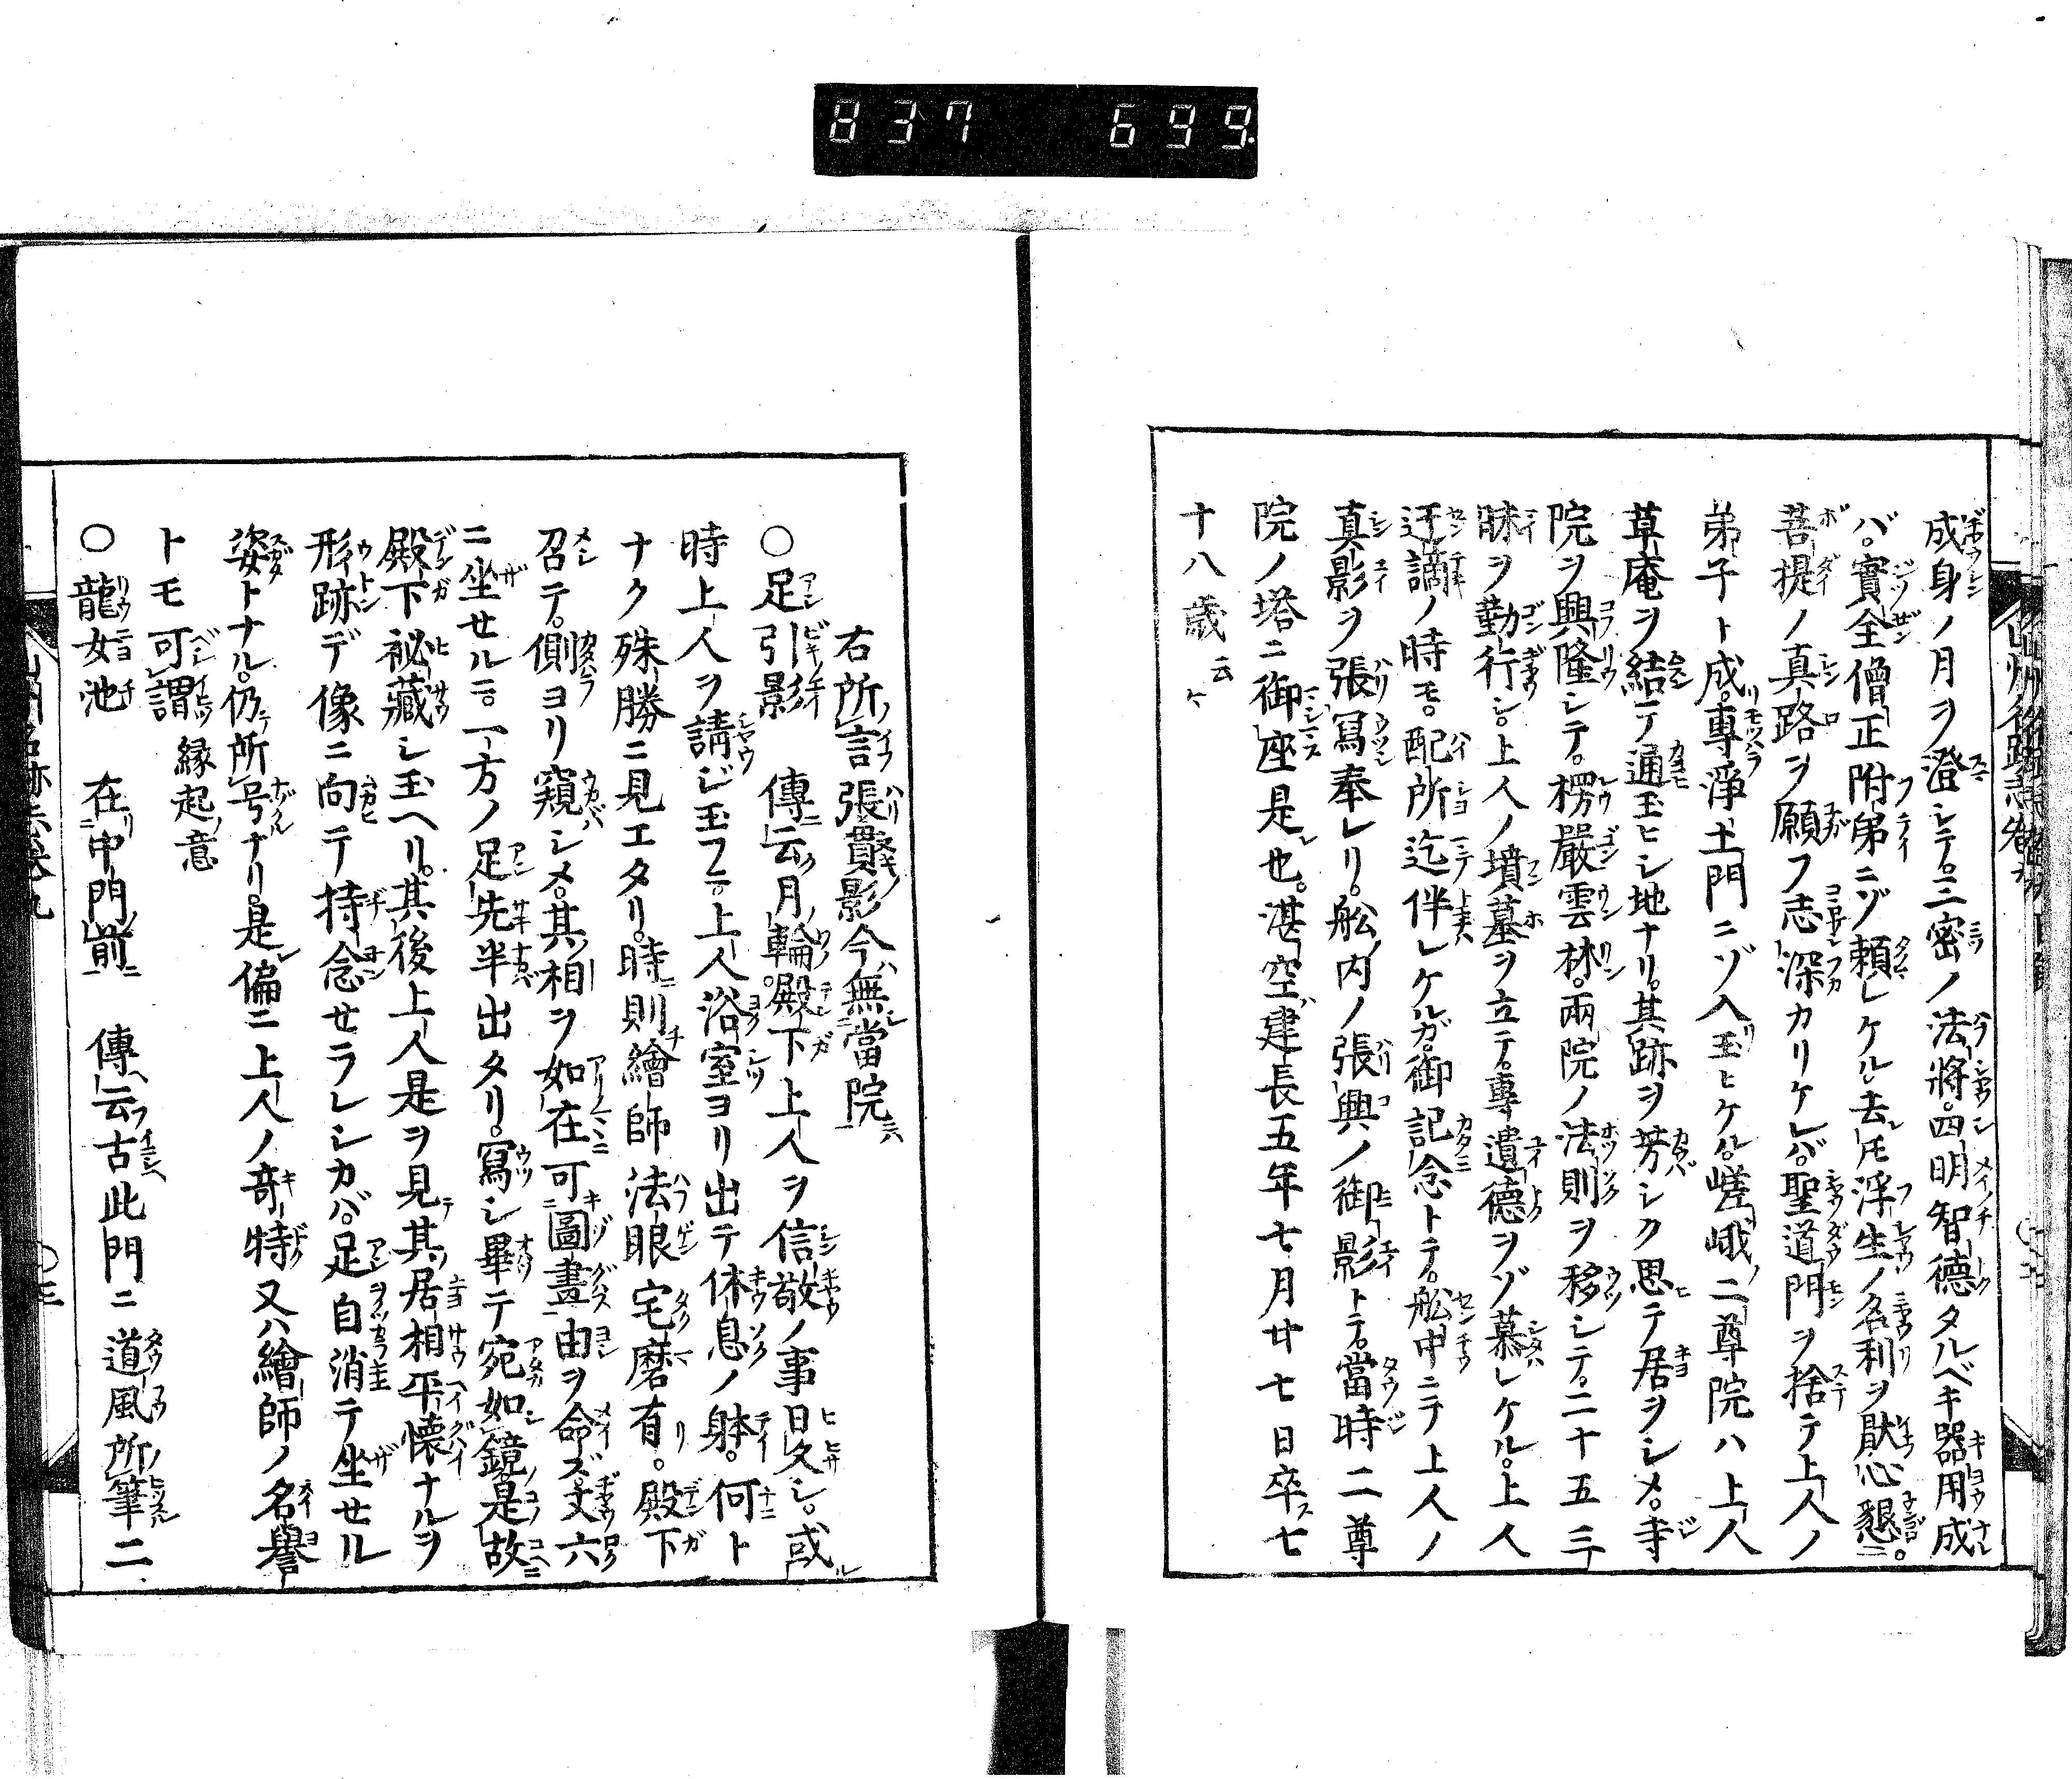 837 699
成身ノ月ヲ澄シテ。三密ノ法將。四明智德タルベキ器用成
バ。實全僧正附弟ニゾ賴レケル。去𪜈浮生ノ名利ヲ猒。心懇。
菩提ノ真路ヲ願フ志深カリケレバ。聖道門ヲ捨テ上人ノ
弟子ト成。專淨土門ニゾ入玉ヒケル。嵯峨ノ二尊院ハ上人
草庵ヲ結テ通玉ヒシ地ナリ。其跡ヲ芳シク思テ居ヲシメ。寺
院ヲ興隆シテ。楞嚴雲林。兩院ノ法則ヲ移シテ。二十五三
昧ヲ勤行シ。上人ノ墳墓ヲ立テ。專遺德ヲゾ慕レケル。上人
迁謫ノ時モ。配所迄伴レケルガ。御記念トテ。舩中ニテ上人ノ
真影ヲ張寫奉レリ。舩ノ内ノ張輿ノ御影トテ。當時二尊
院ノ塔ニ御座是也。湛空建長五年七月廿七日卒ス七
十八歳云々
右所言張貫影今ハ無當院云
○足引影 傳云月輪殿下上人ヲ信敬ノ事日久シ。或
時上人ヲ請ジ玉フニ。上人浴室ヨリ出テ休息ノ躰。何ト
ナク殊勝ニ見エタリ。時則繪師法眼宅磨有。殿下
召テ。側ヨリ窺シメ。其相ヲ如在可圖畫由ヲ命ズ。丈六
ニ坐セルニ。一方ノ足先半出タリ。寫シ畢テ宛如鏡。是故
殿下祕藏シ玉ヘリ。其後上人是ヲ見テ其居相平懐ナルヲ
形跡デ像ニ向テ持念セラレシカバ。足自消テ坐セル
姿トナル。仍テ所号ナリ。是偏ニ上人ノ竒特又ハ繪師ノ名譽
トモ可謂 縁起ノ意
○龍女池 在中門前 傳云古此門ニ道風所筆二